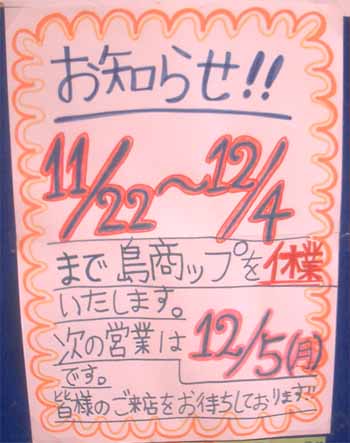 お知らせ!!
11/22〜12/4
まで島商ップを休業
いたします。
次の営業は12/5(月)
です。
皆様のご来店をお待ちしております!!